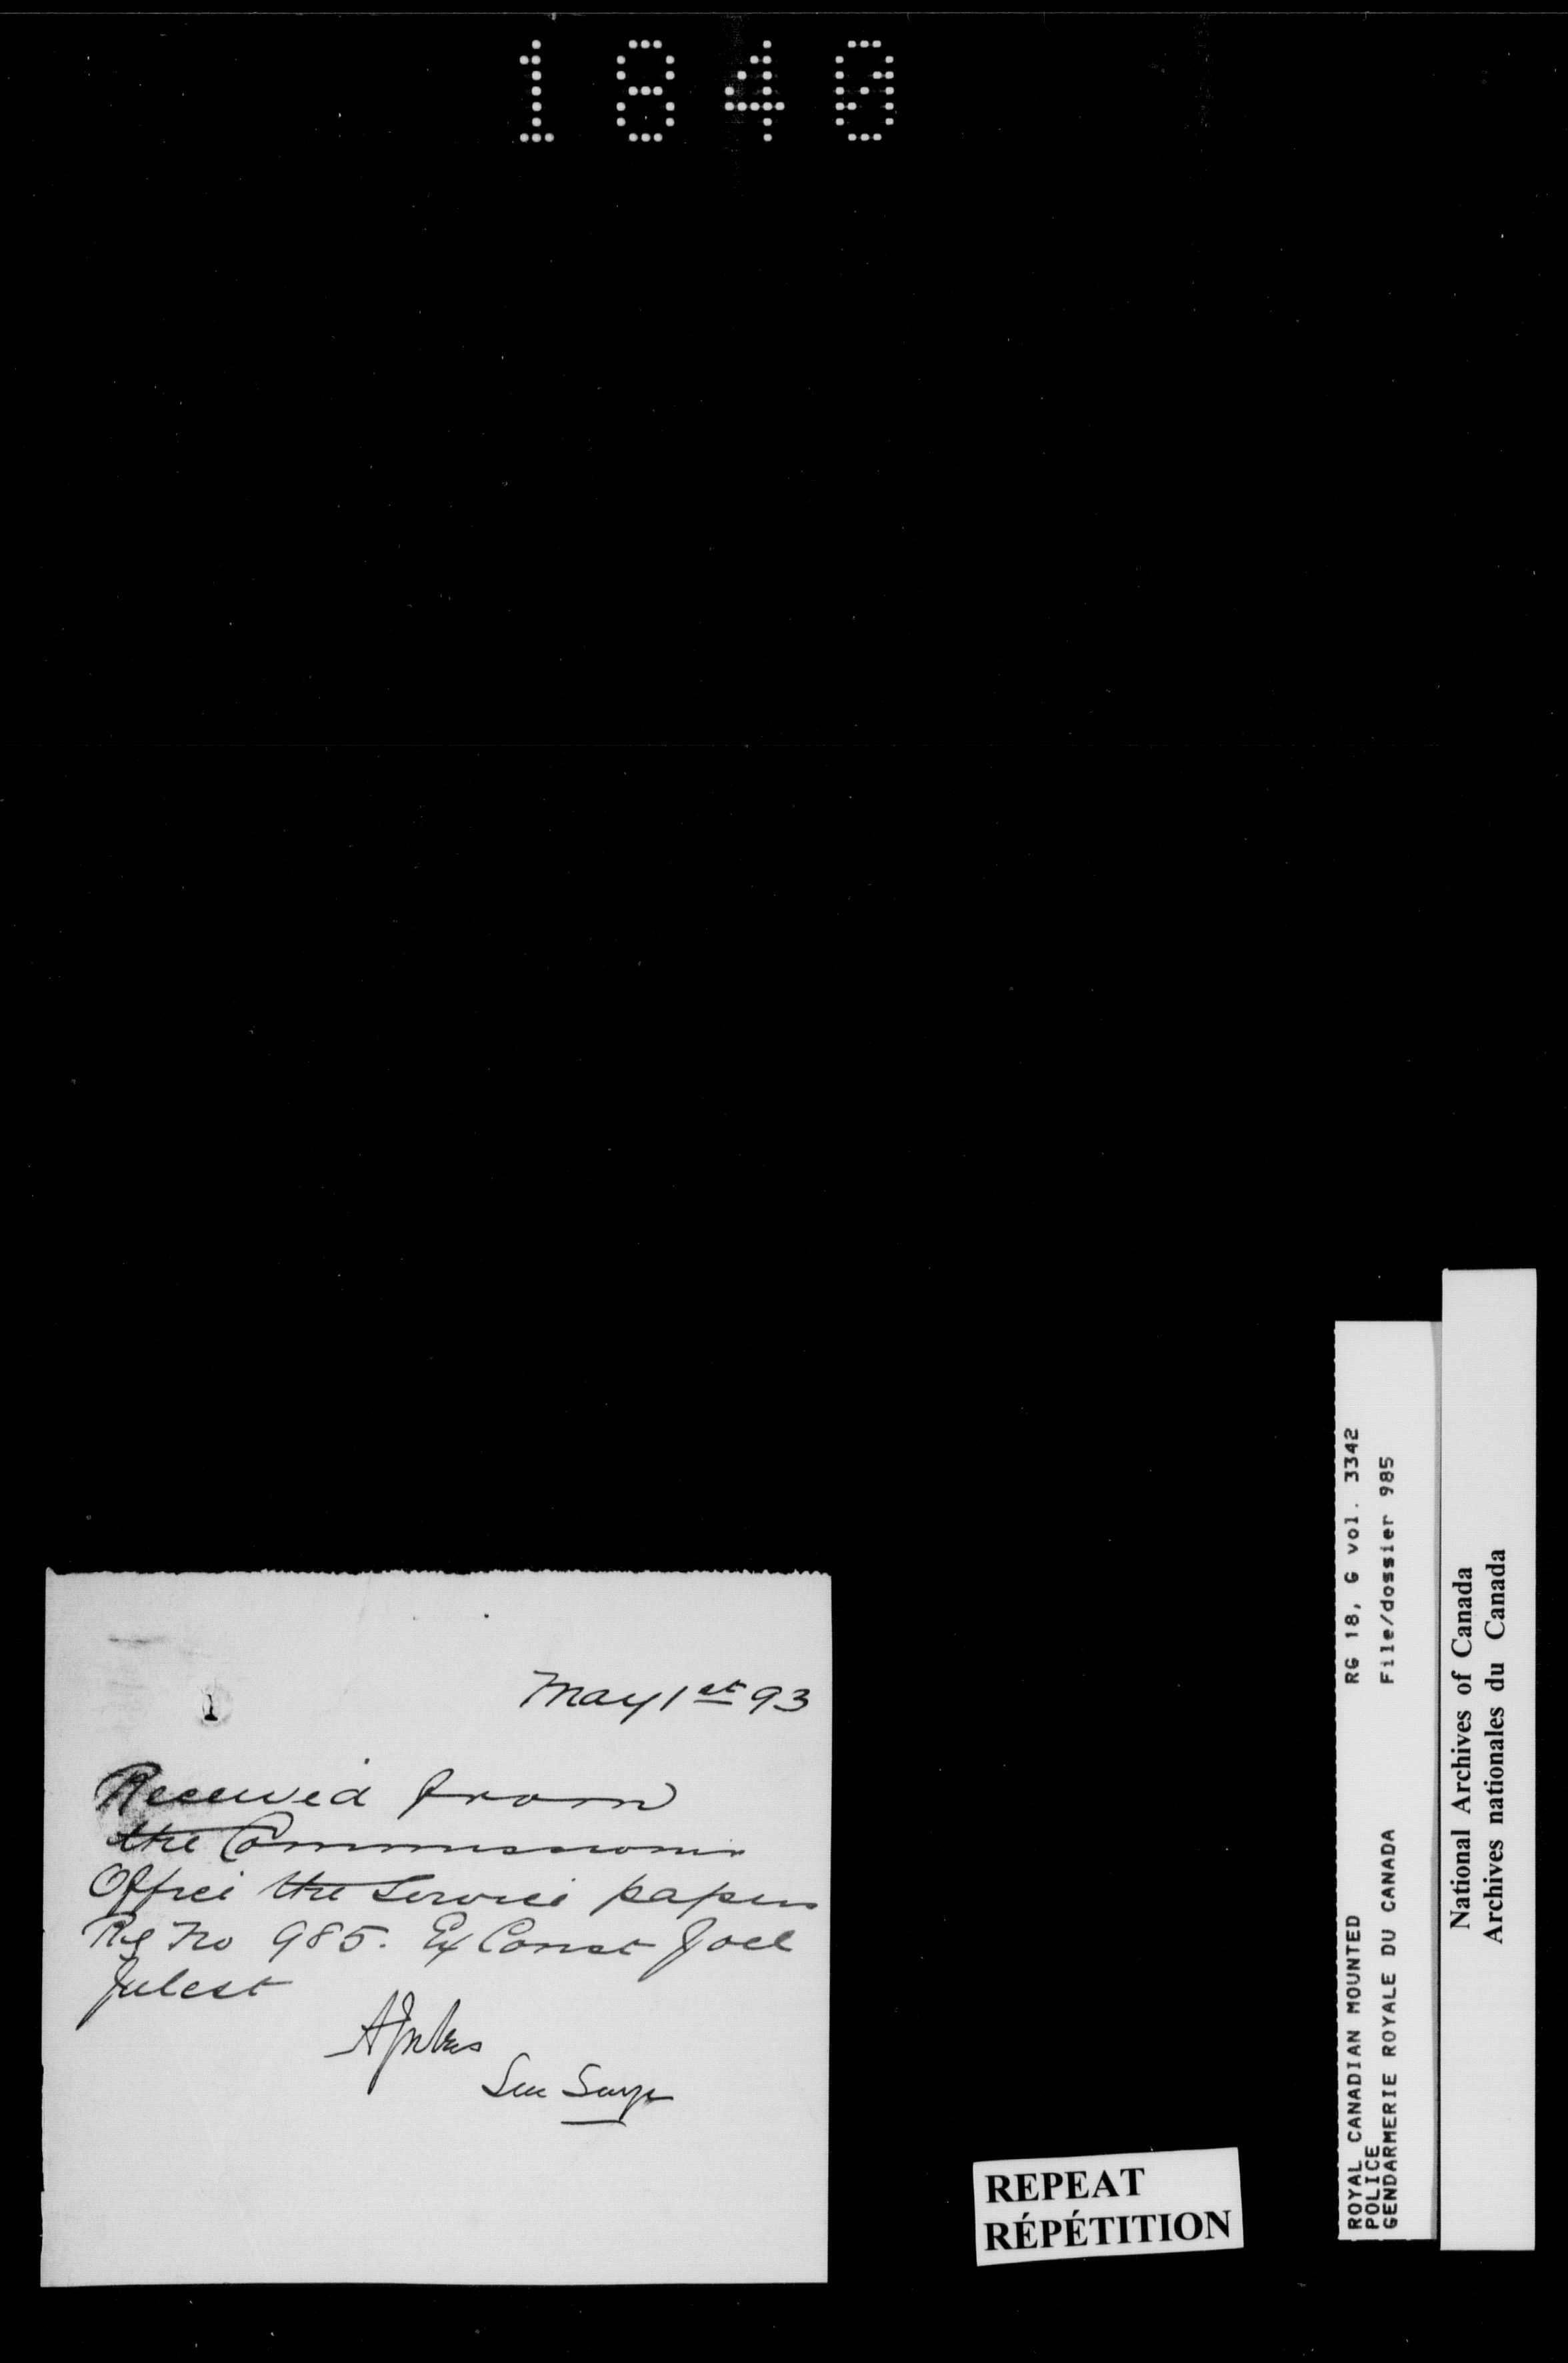 1840
May 1st 93
Received from
the Commissioner
Office the Service papers
Rg No 985. Ex Const Joel
Julest
AJukes
Sen Surge
REPEAT
RÉPÉTITION
ROYAL CANADIAN MOUNTED
POLICE
GENDARMERIE ROYALE DU CANADA
RG 18, G vol. 3342
File/dossier 985
National Archives of Canada
Archives nationales du Canada